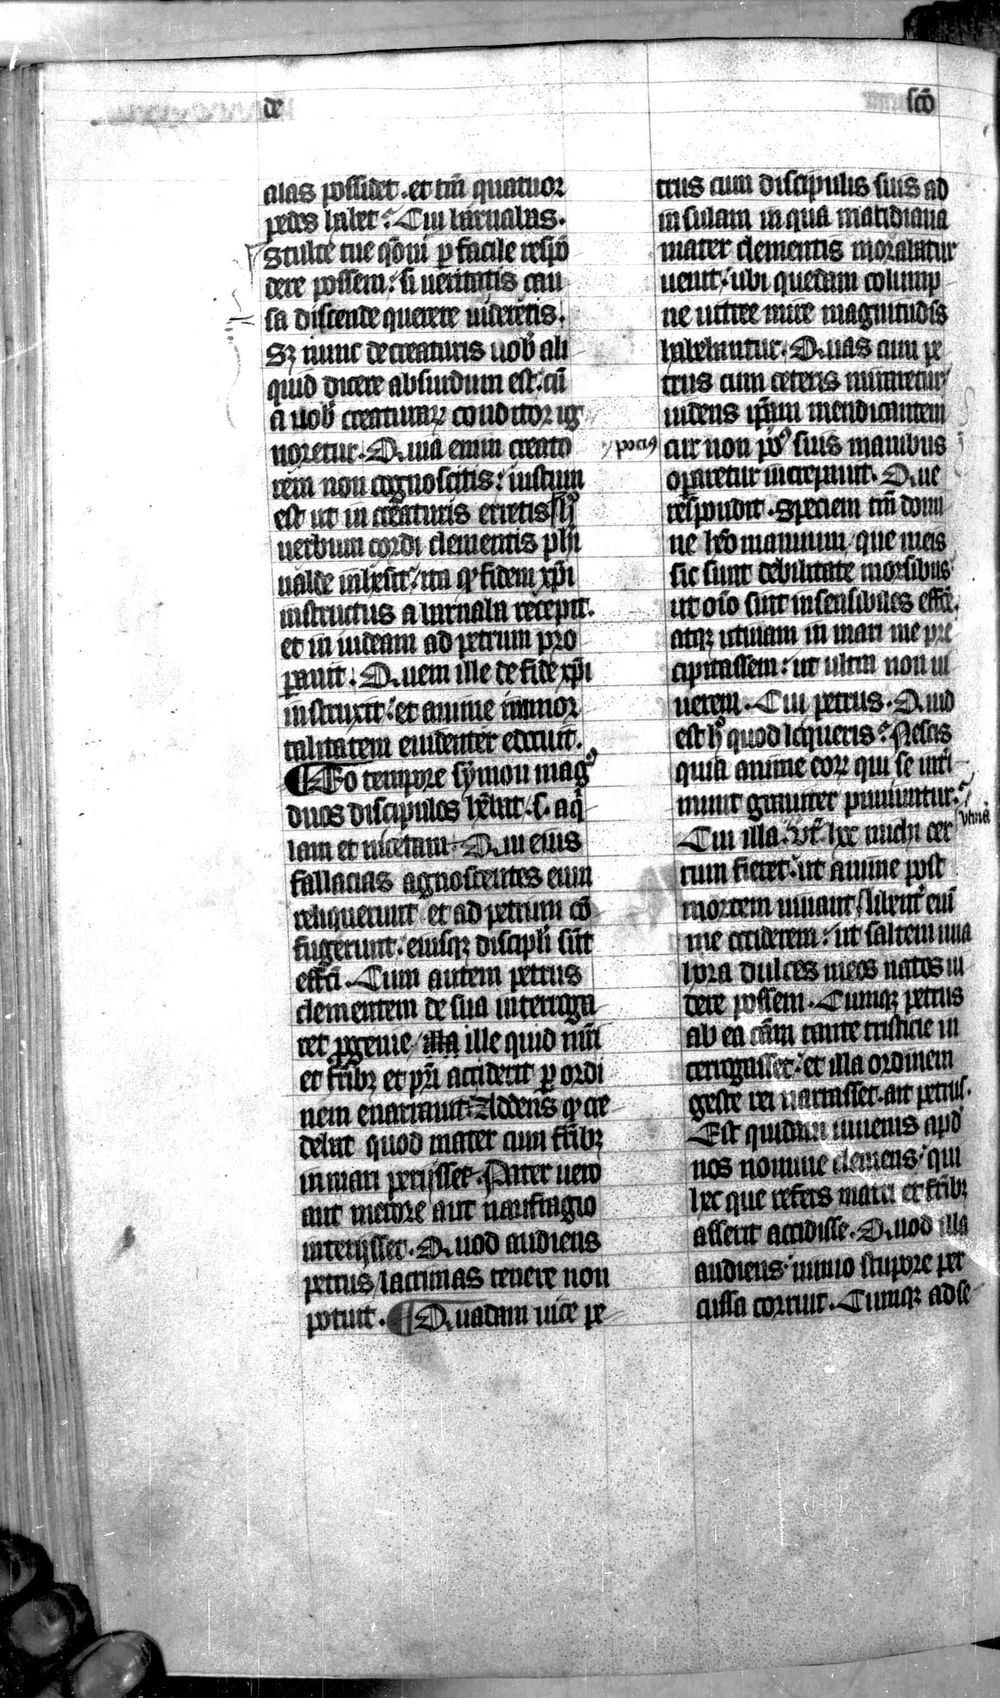 de
sco̅
alas possidet . et tm̅ quatuor
pedes habet . Cui barnabas .
Stulte tue qo̅ni p̱ facile respo̅
dere possem : si ueritatis cau
sa discende querere uideretis .
Sꝫ nunc de creaturis uob̅ ali
quid dicere absurdum est . cu̅
a uob̅ creaturaꝝ conditor ig
noretur . Quia enim creato
rem non cognoscitis : iustum
est ut in creaturis erretis
uerbum cordi clementis phi
ualde inhesit / ita qꝫ fidem xp̅i
instructus a barnaba recepit .
et in iudeam ad petrum pro
perauit . Quem ille de fide xp̅i
instruxit . et anime inmor
talitatem euidenter edocuit .
¶ Eo tempore symon mag9
duos discipulos habuit . s . aq̅
lam et nicetam . Qui eius
fallacias agnoscentes eum
reliquerunt et ad petrum co̅
fugerunt . eiusqꝫ discipli su̅t
effc̅i . Cum autem petrus
clementem de sua interroga
ret ꝓgenie / ille quid mr̅i
et fr̅ibꝫ et pr̅i acciderit ꝑ ordi
nem enarrauit . Addens qꝫ cre
debat quod mater cum fr̅ibꝫ
in mari perijsset . Pater uero
aut merore aut naufragio
interijsset . Quod audiens
petrus / lacrimas tenere non
potuit . ¶ Quadam uice pe
trus cum discipulis suis ad
insulam in qua matidiana
mater clementis morabatur
uenit . ubi quedam colump
ne uitree mire magnitudi̅s
habebantur . Quas cum pe
trus cum ceteris miraretur
uidens ip̅am mendicantem
poci9 cur non suis manibus
operaretur increpauit . Que
respondit . Speciem tm̅ domi
ne h̅o manuum / que meis
sic sunt debilitate morsibus
ut oi̅o sint insensibiles effc̅e .
atqꝫ utinam in mari me pre
cipitassem : ut ultra non ui
uerem . Cui petrus . Quid
est h̅ quod loqueris . Nescis
quia anime eoꝝ qui se inti
munt grauiter puniuntur .
utina̅
Cui illa . ut̅ hec michi cer
tum fieret . ut anime post
mortem uiuant / libent̅ eni̅
me occiderem : ut saltem una
hora dulces meos natos ui
dere possem . Cumqꝫ petrus
ab ea ca̅m tante tristicie in
terrogasset . et illa ordinem
geste rei narrasset . ait petrus .
Est quidam iuuenis apd̅
nos nomine clemens / qui
hec que refers matri et fr̅ibꝫ
asserit accidisse . Quod illa
audiens . nimio stupore per
cussa corruit . Cumqꝫ ad se